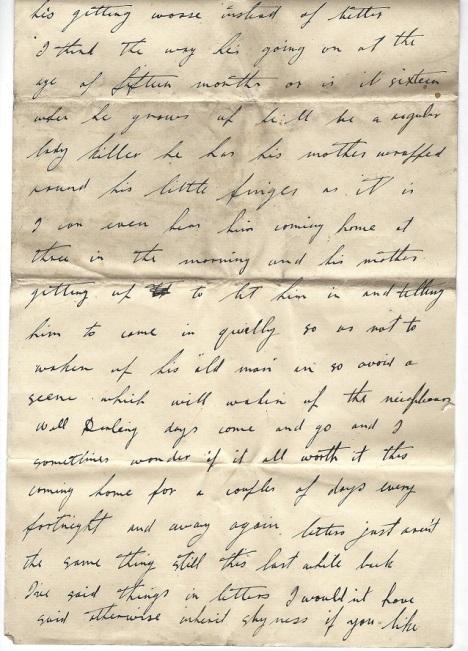 his getting worse instead of better
I think the way he's going on at the
age of fifteen months or is it sixteen
when he grows up he'll be a regular
lady killer he has his mother wrapped
round his little finger as it is
I can even hear him coming home at
three in the morning and his mother
getting up to let him in and telling
him to come in quietly so as not to
waken up his "old man" an so avoid a
scene which will waken up the neighbours
Well Darling days come and go and I
sometimes wonder if it all worth it this
coming home for a couples of days every
fortnight and away again letters just aren't
the same thing still this last while back
I've said things in letters I would'nt have
said otherwise shyness if you like